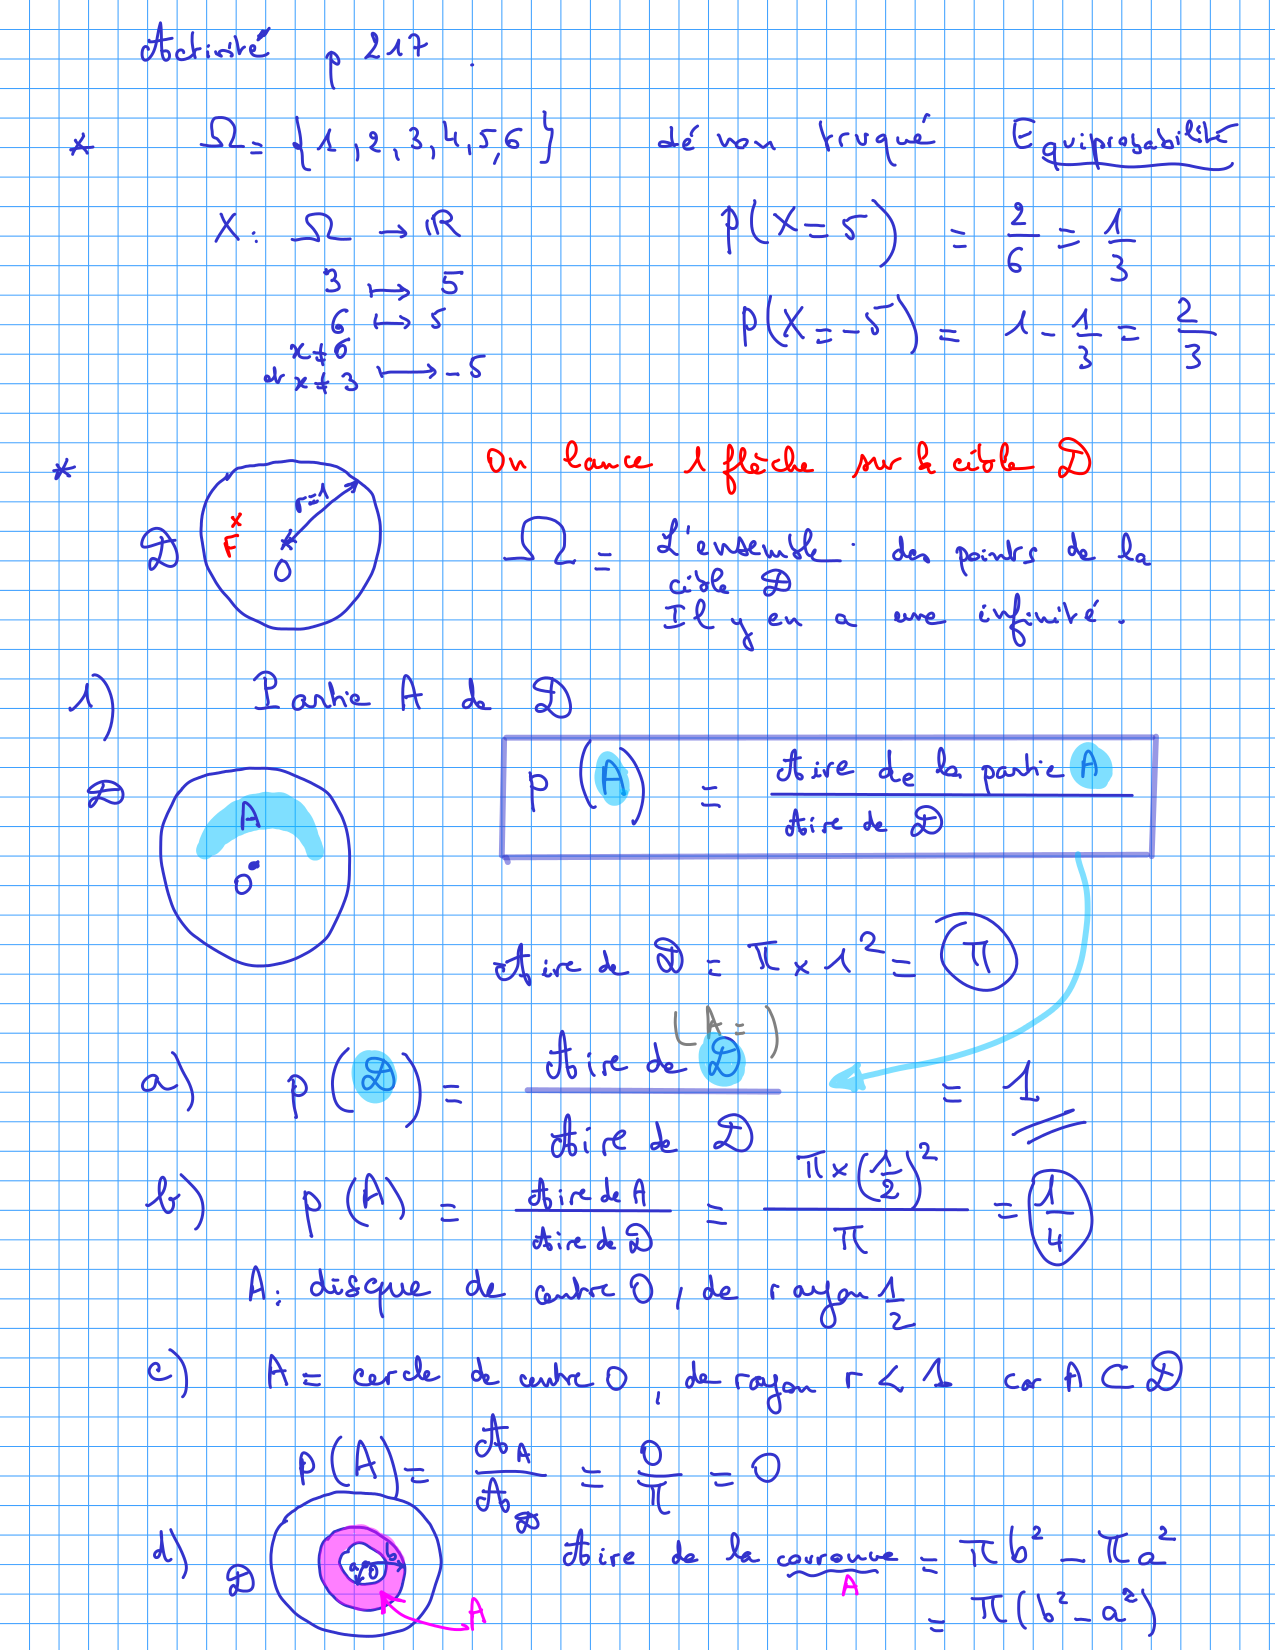 Activité p 217.
* Ω = {1, 2, 3, 4, 5, 6} dé non truqué Equiprobabilité
X : Ω → ℝ p(X = 5) = 2/6 = 1/3
3 ↦ 5
6 ↦ 5 p(X = -5) = 1 - 1/3 = 2/3
x ≠ 6
et x ≠ 3 ↦ -5
* On lance 1 flèche sur la cible D
r=1
x
F
D
O
Ω = L'ensemble des points de la
cible D
Il y en a une infinité.
1) Partie A de D
D
A
O
p(A) = Aire de la partie A / Aire de D
Aire de D = π × 1² = π
(A = )
a) p(D) = Aire de D / Aire de D = 1
b) p(A) = Aire de A / Aire de D = π × (1/2)² / π = 1/4
A : disque de centre O, de rayon 1/2
c) A = cercle de centre O, de rayon r < 1 car A ⊂ D
p(A) = A_A / A_D = 0/π = 0
d) D
a O b
A
Aire de la couronne = πb² - πa²
A
= π(b² - a²)